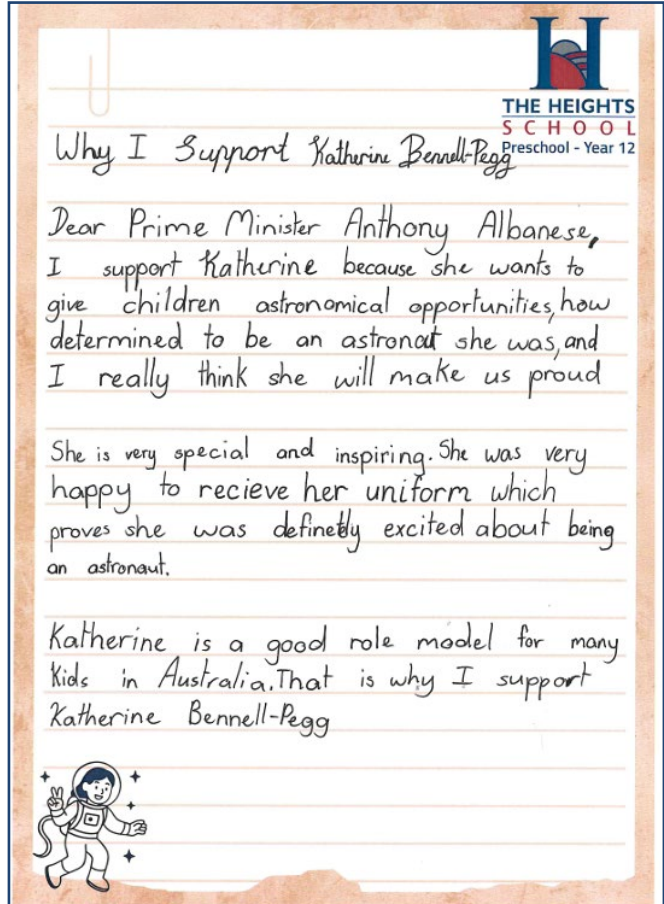 THE HEIGHTS
SCHOOL
Preschool - Year 12
Why I Support Katherine Bennell-Pegg
Dear Prime Minister Anthony Albanese,
I support Katherine because she wants to
give children astronomical opportunities, how
determined to be an astronaut she was, and
I really think she will make us proud
She is very special and inspiring. She was very
happy to recieve her uniform which
proves she was definetly excited about being
an astronaut.
Katherine is a good role model for many
Kids in Australia. That is why I support
Katherine Bennell-Pegg